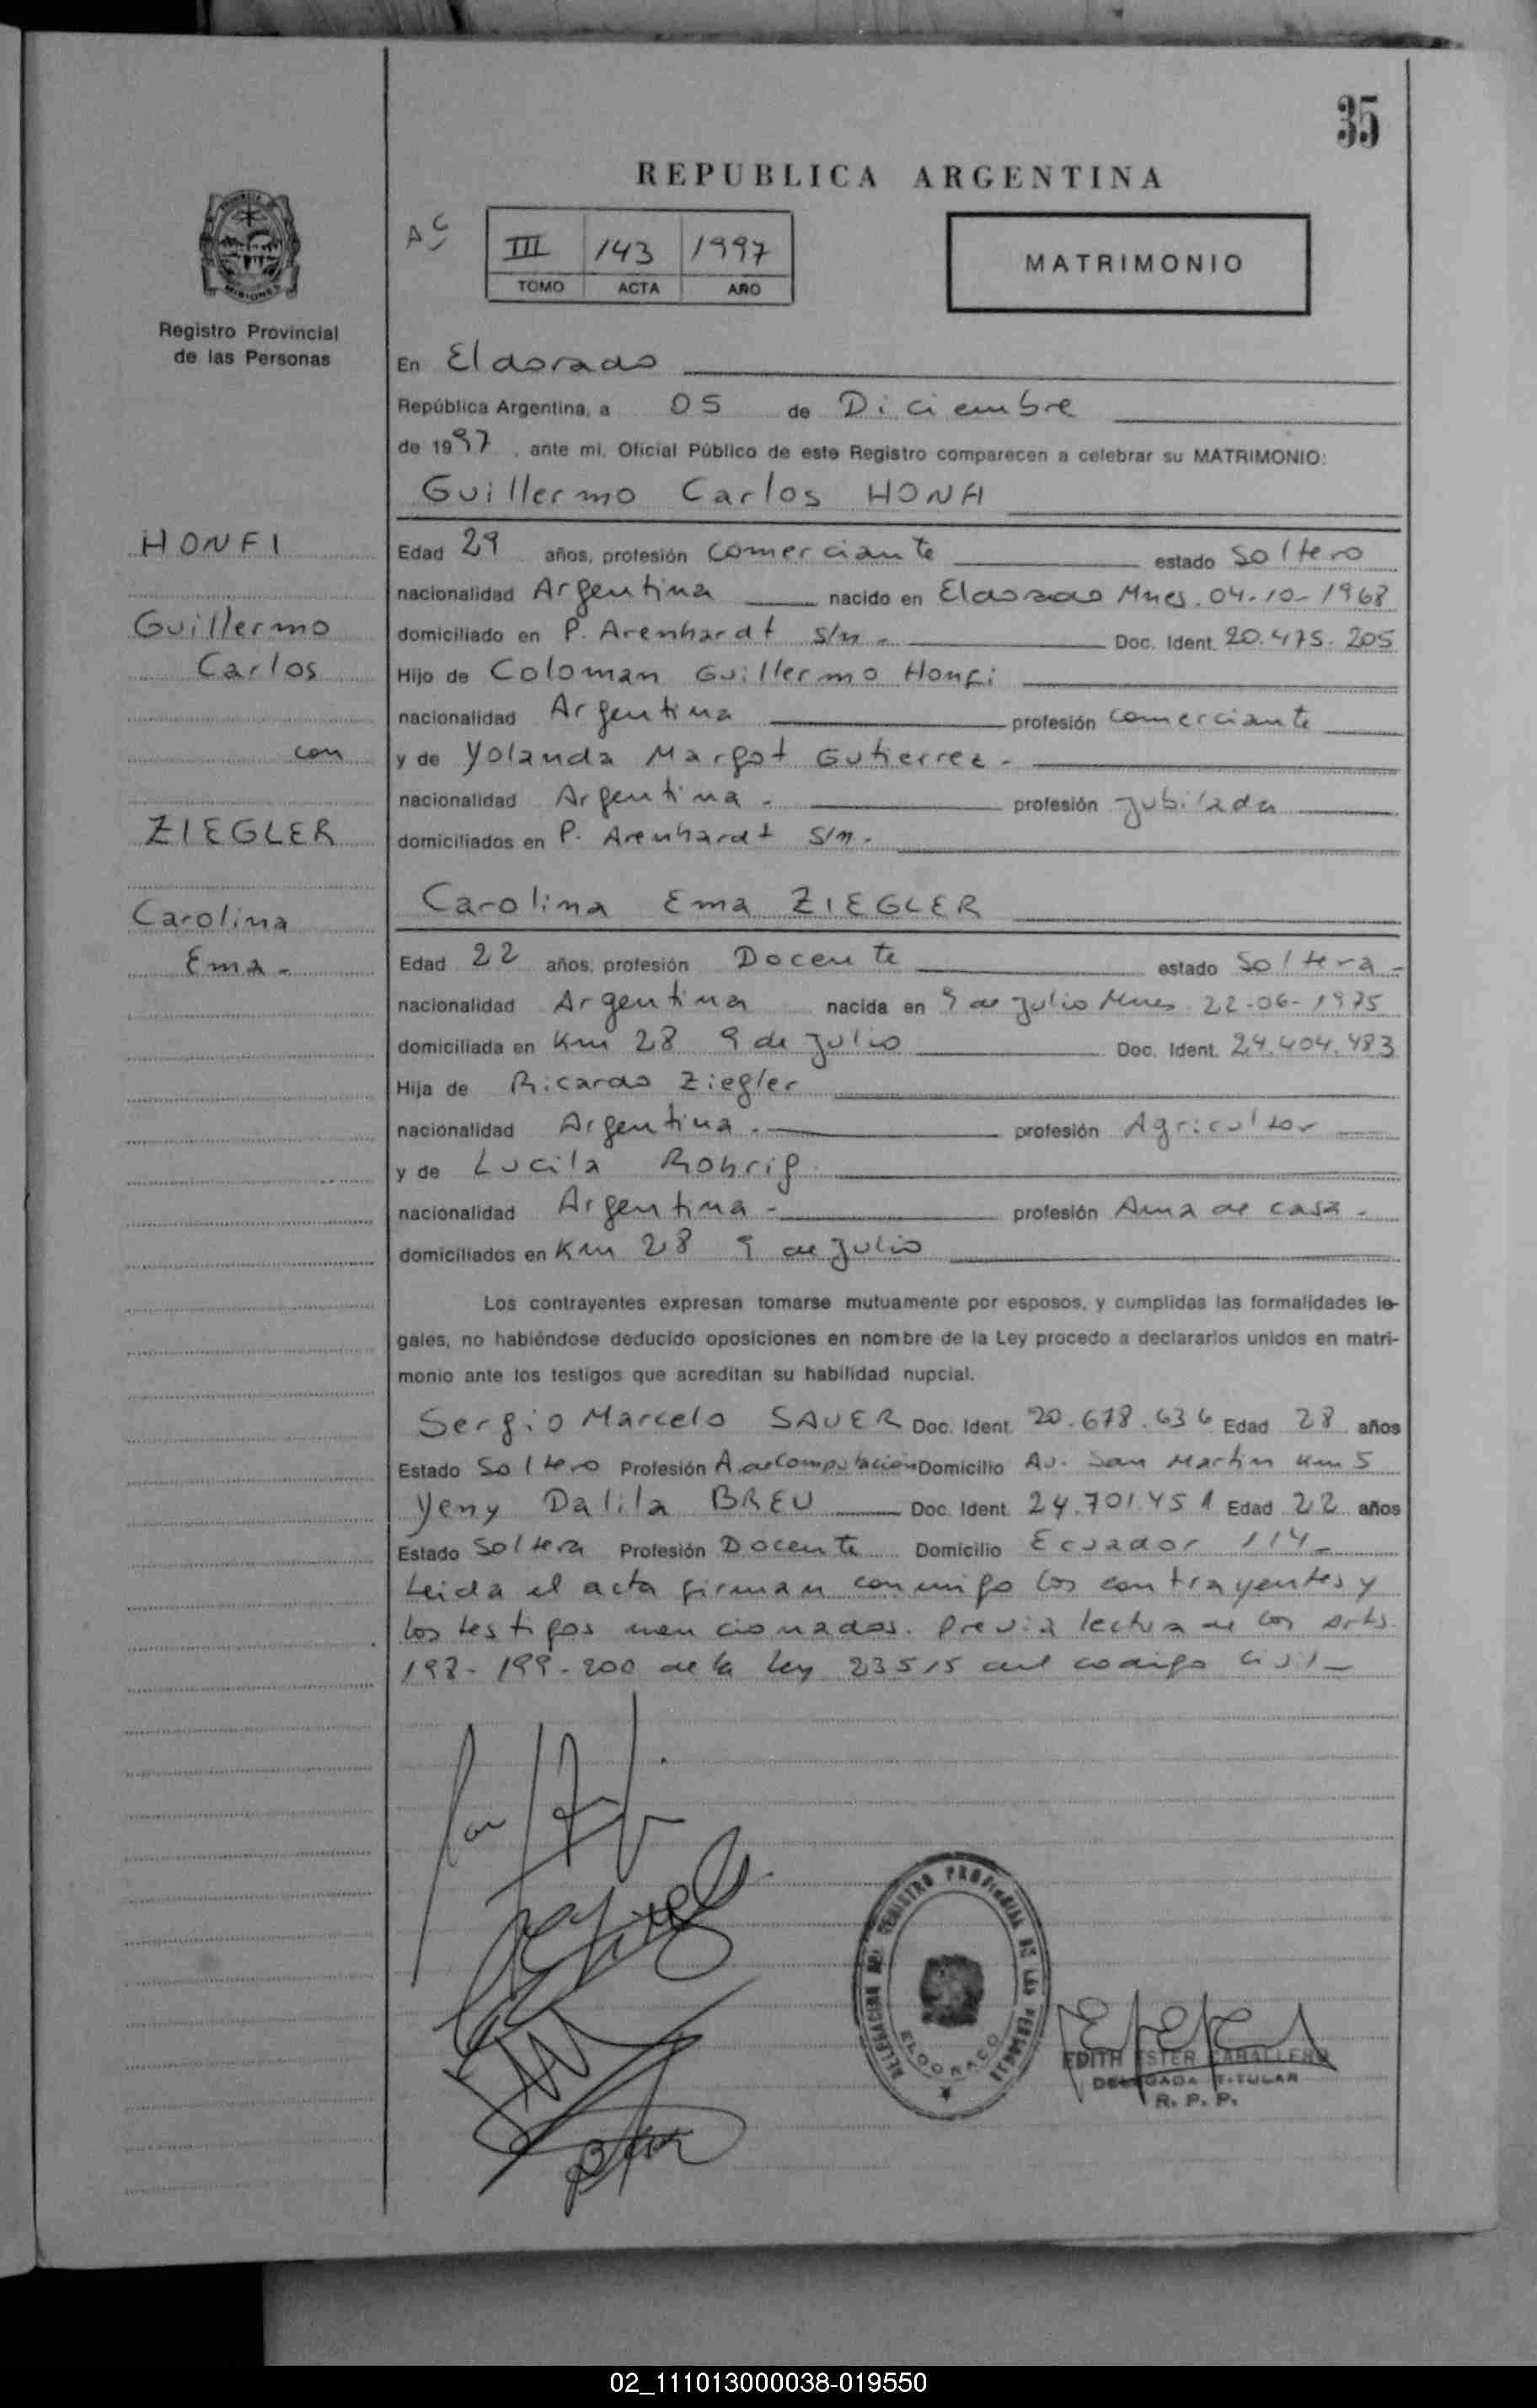 35
REPUBLICA ARGENTINA
III 143 1997
TOMO ACTA AÑO
MATRIMONIO
MISIONES
Registro Provincial
de las Personas
En Eldorado
República Argentina, a 05 de Diciembre
de 1997, ante mi, Oficial Público de este Registro comparecen a celebrar su MATRIMONIO:
Guillermo Carlos
HONFI
Guillermo
Carlos
con
ZIEGLER
Carolina
Ema -
Edad 29 años, profesión comerciante estado Soltero
nacionalidad Argentina nacido en Eldorado Mnes. 04-10-1968
domiciliado en P. Arenhardt S/n - Doc. Ident. 20.475.205
Hijo de Coloman Guillermo Honfi
nacionalidad Argentina profesión comerciante
y de Yolanda Margot Gutierrez -
nacionalidad Argentina - profesión Jubilada
domiciliados en P. Arenhardt S/n -
Carolina Ema ZIEGLER
Edad 22 años, profesión Docente estado Soltera -
nacionalidad Argentina nacida en 9 de Julio Mnes 22-06-1975
domiciliada en Km 28 9 de Julio Doc. Ident. 24.404.483
Hija de Ricardo Ziegler
nacionalidad Argentina - profesión Agricultor
y de Lucila Rohrig
nacionalidad Argentina - profesión Ama de casa -
domiciliados en Km 28 9 de Julio
Los contrayentes expresan tomarse mutuamente por esposos, y cumplidas las formalidades le-
gales, no habiéndose deducido oposiciones en nombre de la Ley procedo a declararlos unidos en matri-
monio ante los testigos que acreditan su habilidad nupcial.
Sergio Marcelo SAUER Doc. Ident. 20.678.636 Edad 28 años
Estado Soltero Profesión A de Computación Domicilio Av. San Martin Km 5
Yeny Dalila BREU Doc. Ident. 24.701.451 Edad 22 años
Estado Soltera Profesión Docente Domicilio Ecuador 114 -
Leida el acta firman conmigo los contrayentes y
los testigos mencionados. Previa lectura de los arts
198-199-200 de la Ley 23515 del codigo civil -
DELEGACION DEL REGISTRO PROVINCIAL DE LAS PERSONAS
ELDORADO
EDITH ESTER CABALLERO
DELEGADA TITULAR
R. P. P.
02_111013000038-019550